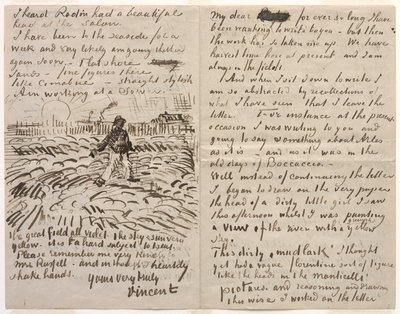 I heard Rodin had a beautiful
head at the Salon.
I have been to the seaside for a
week and very likely am going thither
again soon. - Flat shore
sands - fine figures there
like Cimabue - straight stylish
Am working at a Sower.
the great field all violet the sky & sun very
yellow. it is a hard subject to treat.
Please remember me very kindly to
Mrs Russell - and in thought I heartily
shake hands.
Yours very truly
Vincent
My dear for ever so long I have
been wanting to write to you - but then
the work has so taken me up. We have
harvest time here at present and I am
always in the fields.
And when I sit down to write I
am so abstracted by recollections of
what I have seen that I leave the
letter. For instance at the present
occasion I was writing to you and
going to say something about Arles
as it is - and as it was in the
old days of Boccaccio. -
Well instead of continuing the letter
I began to draw on the very paper
the head of a dirty little girl I saw
this afternoon whilst I was painting
a view of the river with a greenish yellow
sky.
This dirty "mudlark" I thought
yet had a vague florentine sort of figure
like the heads in the monticelli
pictures. and reasoning and drawing
this wise I worked on the letter